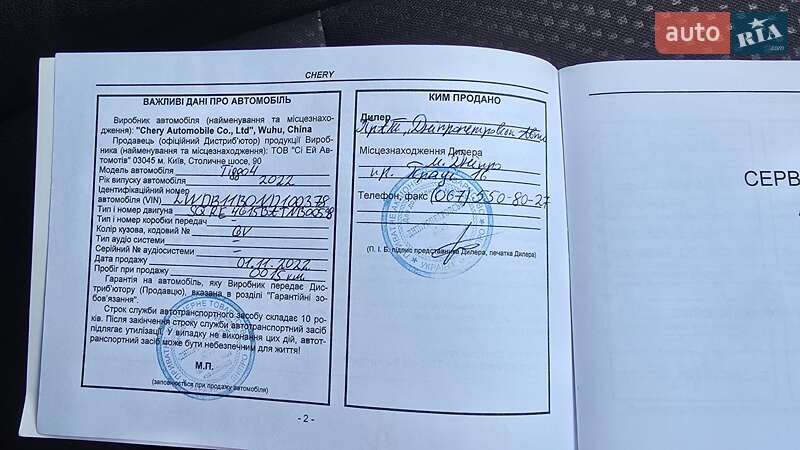 auto
RIA
.com
CHERY
ВАЖЛИВІ ДАНІ ПРО АВТОМОБІЛЬ
Виробник автомобіля (найменування та місцезнахо-
дження): "Chery Automobile Co., Ltd", Wuhu, China
Продавець (офіційний Дистриб'ютор) продукції Вироб-
ника (найменування та місцезнаходження): ТОВ "Сі Ей Ав-
томотів" 03045 м. Київ, Столичне шосе, 90
Модель автомобіля Tiggo4
Рік випуску автомобіля 2022
Ідентифікаційний номер
автомобіля (VIN)
Тип і номер двигуна
Тип і номер коробки передач –
Колір кузова, кодовий № GV
Тип аудіо системи –
Серійний № аудіосистеми –
Дата продажу 01.11.2022
Пробіг при продажу 0015 км
Гарантія на автомобіль, яку Виробник передає Дис-
триб'ютору (Продавцю), вказана в розділі "Гарантійні зо-
бов'язання".
Строк служби автотранспортного засобу складає 10 ро-
ків. Після закінчення строку служби автотранспортний засіб
підлягає утилізації. У випадку не виконання цих дій, автот-
ранспортний засіб може бути небезпечним для життя!
М.П.
(заповнюється при продажу автомобіля)
- 2 -
КИМ ПРОДАНО
Дилер
ПрАТ "Дніпропетровськ Авто"
Місцезнаходження Дилера
м. Дніпро
пр.
Телефон, факс (067) 550-80-27
(П. І. Б. підпис представника Дилера, печатка Дилера)
СЕРВ